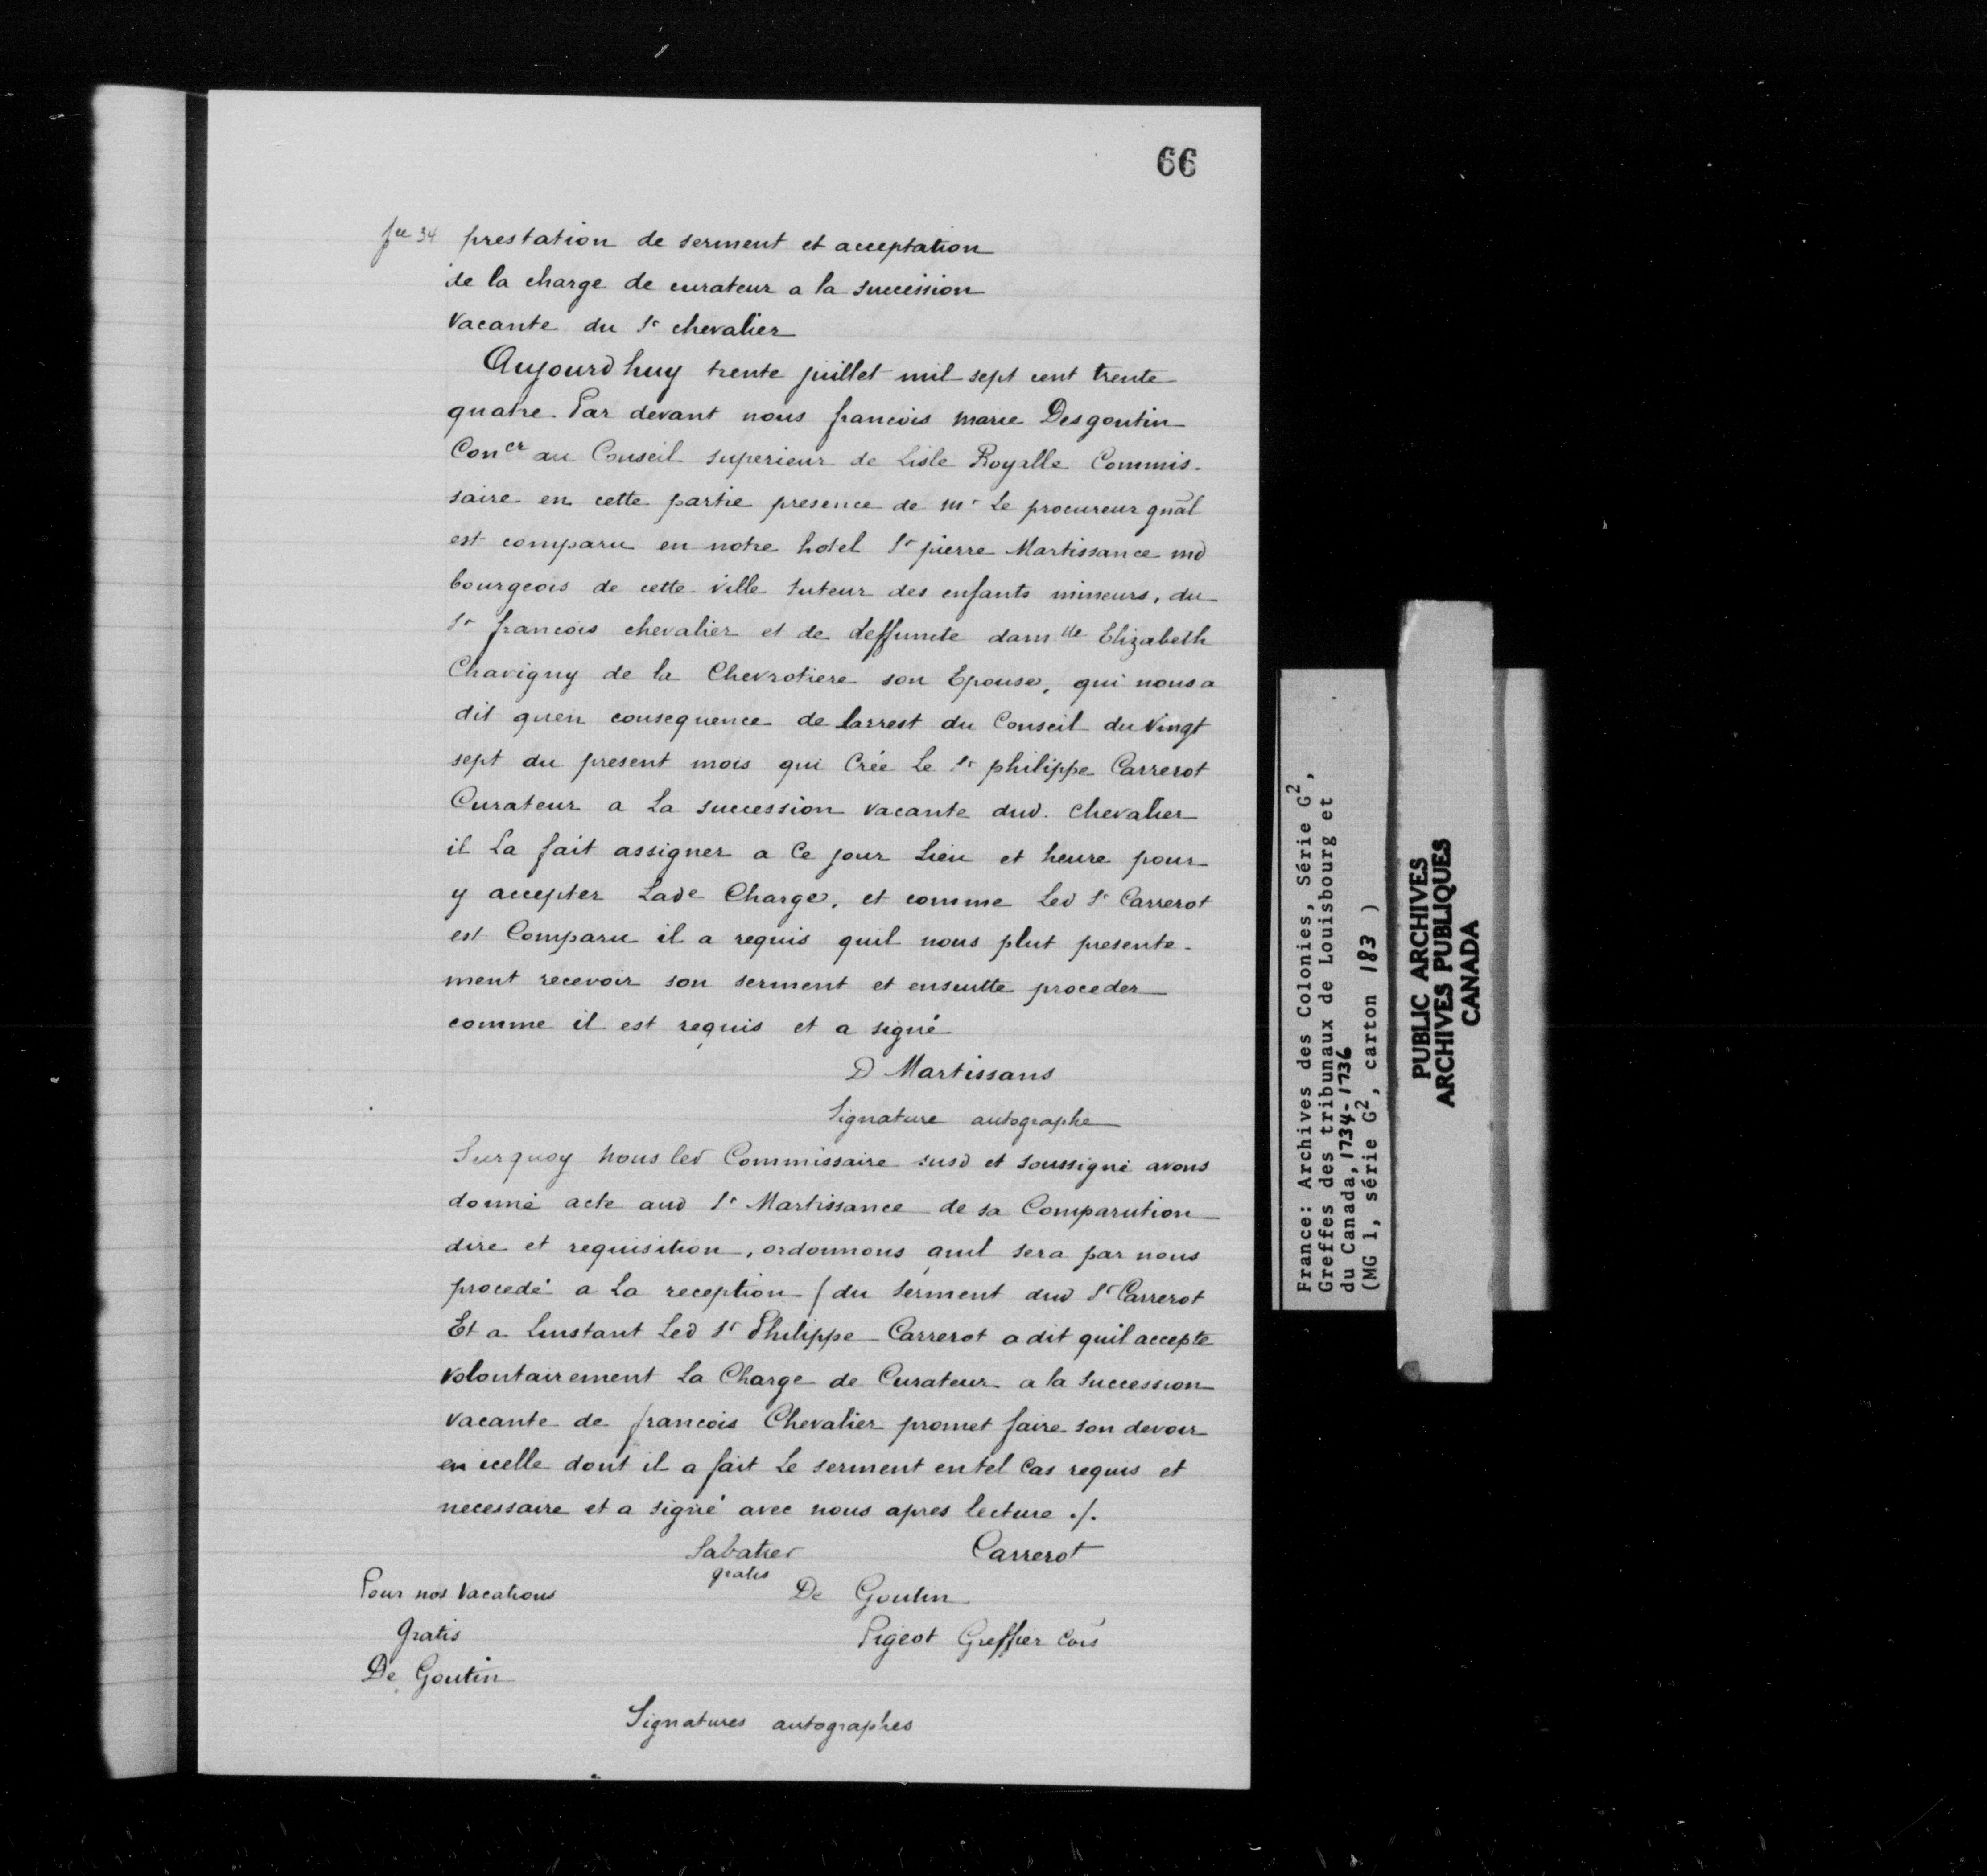 66
fce 34 prestation de serment et acceptation
de la charge de curateur a la succession
vacante du Sr chevalier
Aujourd huy trente juillet mil sept cent trente
quatre. Par devant nous francois marie Desgoutin
Concr au Conseil superieur de Lisle Royalle Commis-
saire en cette partie presence de mr Le procureur gnal
est comparu en notre hotel Sr pierre Martissance md
bourgeois de cette ville tuteur des enfants mineurs, du
Sr francois chevalier et de deffuncte damlle Elizabeth
Chavigny de la Chevrotiere son Epouse, qui nous a
dit quen consequence de larrest du Conseil du Vingt
sept du present mois qui Crée Le Sr philippe Carrerot
Curateur a La succession vacante dud. chevalier
il La fait assigner a Ce jour Lieu et heure pour
y accepter Lade Charge, et comme Led Sr Carrerot
est Comparu il a requis quil nous plut presente-
ment recevoir son serment et ensuitte proceder
comme il est requis et a signé
D Martissans
Signature autographe
Surquoy nous led Commissaire susd et soussigné avons
donné acte aud Sr Martissance de sa Comparution
dire et requisition, ordonnons quil sera par nous
procedé a La reception (du serment dud Sr Carrerot
Et a Linstant Led Sr Philippe Carrerot a dit quil accepte
volontairement La Charge de Curateur a la succession
vacante de francois Chevalier promet faire son devoir
en icelle dont il a fait Le serment en tel Cas requis et
necessaire et a signé avec nous apres lecture ./.
Sabatier Carrerot
gratis
Pour nos vacations De Goutin
Gratis Pigeot Greffier Cois
De Goutin
Signatures autographes
France: Archives des Colonies, Série G2,
Greffes des tribunaux de Louisbourg et
du Canada, 1734-1736
(MG 1, série G2, carton 183 )
PUBLIC ARCHIVES
ARCHIVES PUBLIQUES
CANADA